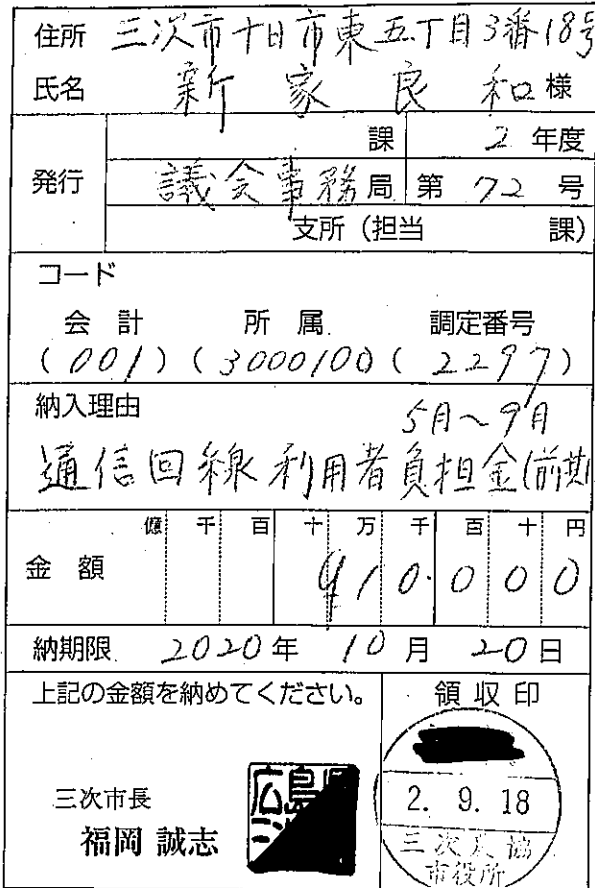 住所 三次市十日市東五丁目3番18号
氏名 新家良和様
課 2年度
発行 議会事務局 第72号
支所(担当 課)
コード
会計 所属 調定番号
(001)(3000100)(2297)
納入理由 5月～9月
通信回線利用者負担金(前期
億 千 百 十 万 千 百 十 円
金額 10.000
納期限 2020年 10月 20日
上記の金額を納めてください。 領収印
三次市長
福岡 誠志
広島
2. 9. 18
三次農協
市役所